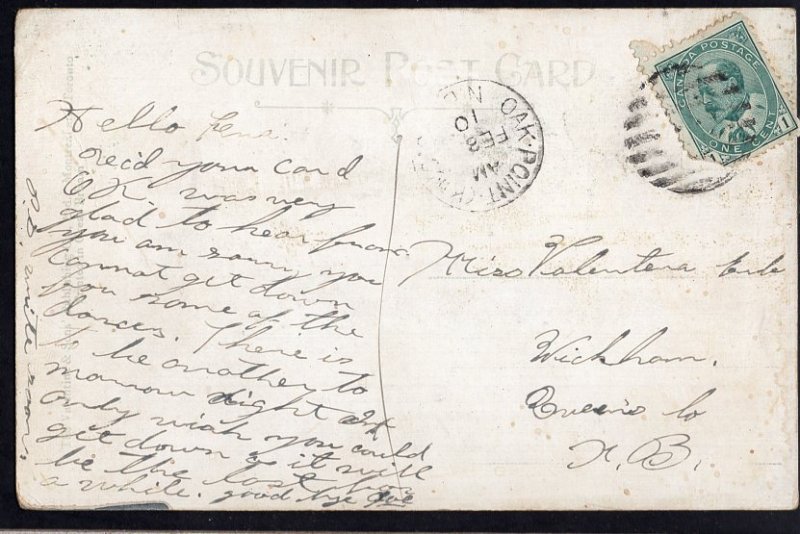 SOUVENIR POST CARD
CANADA POSTAGE
ONE CENT
OAK-POINT
AM
FE 8
10
N.B
Hello
rec'd your card
OK was very
glad to hear from
you am sorry you
cannot get down
for some of the
dances. There is
to be another to
morrow night I
only wish you could
get down as it will
be the last for
a while. good bye
P.S. write soon.
Miss Valentena
Wickham.
Queens Co
N.B.